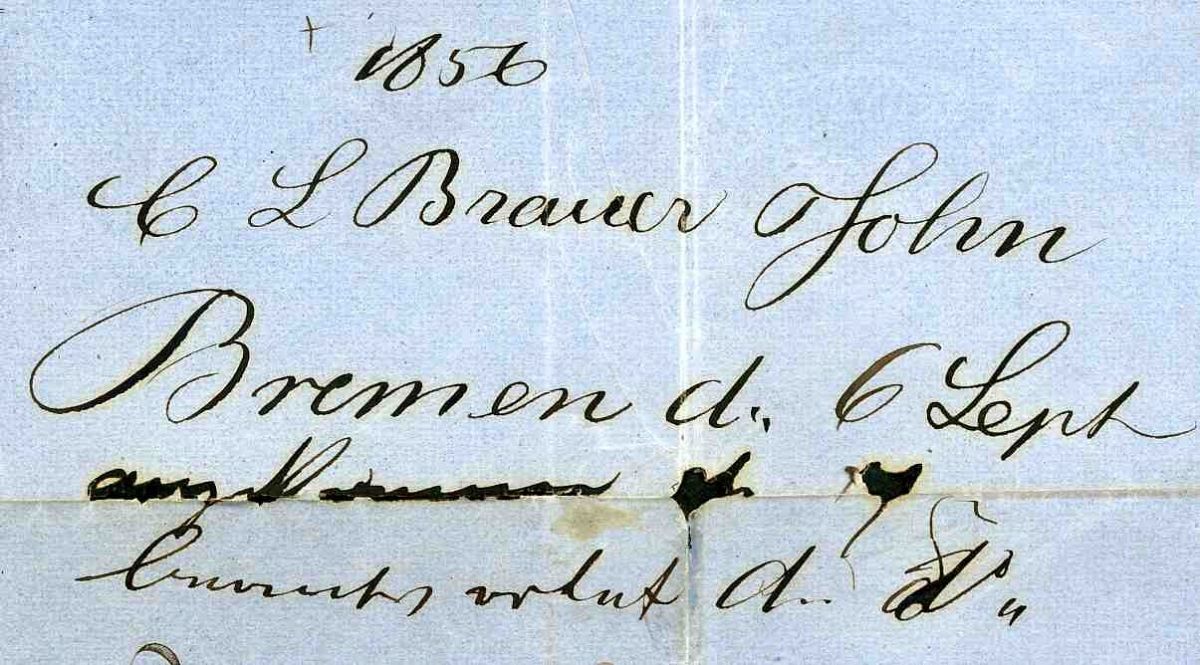 1856
C L Brauer John
Bremen d. 6 Sept
angekommen d. 7
beantwortet d. do